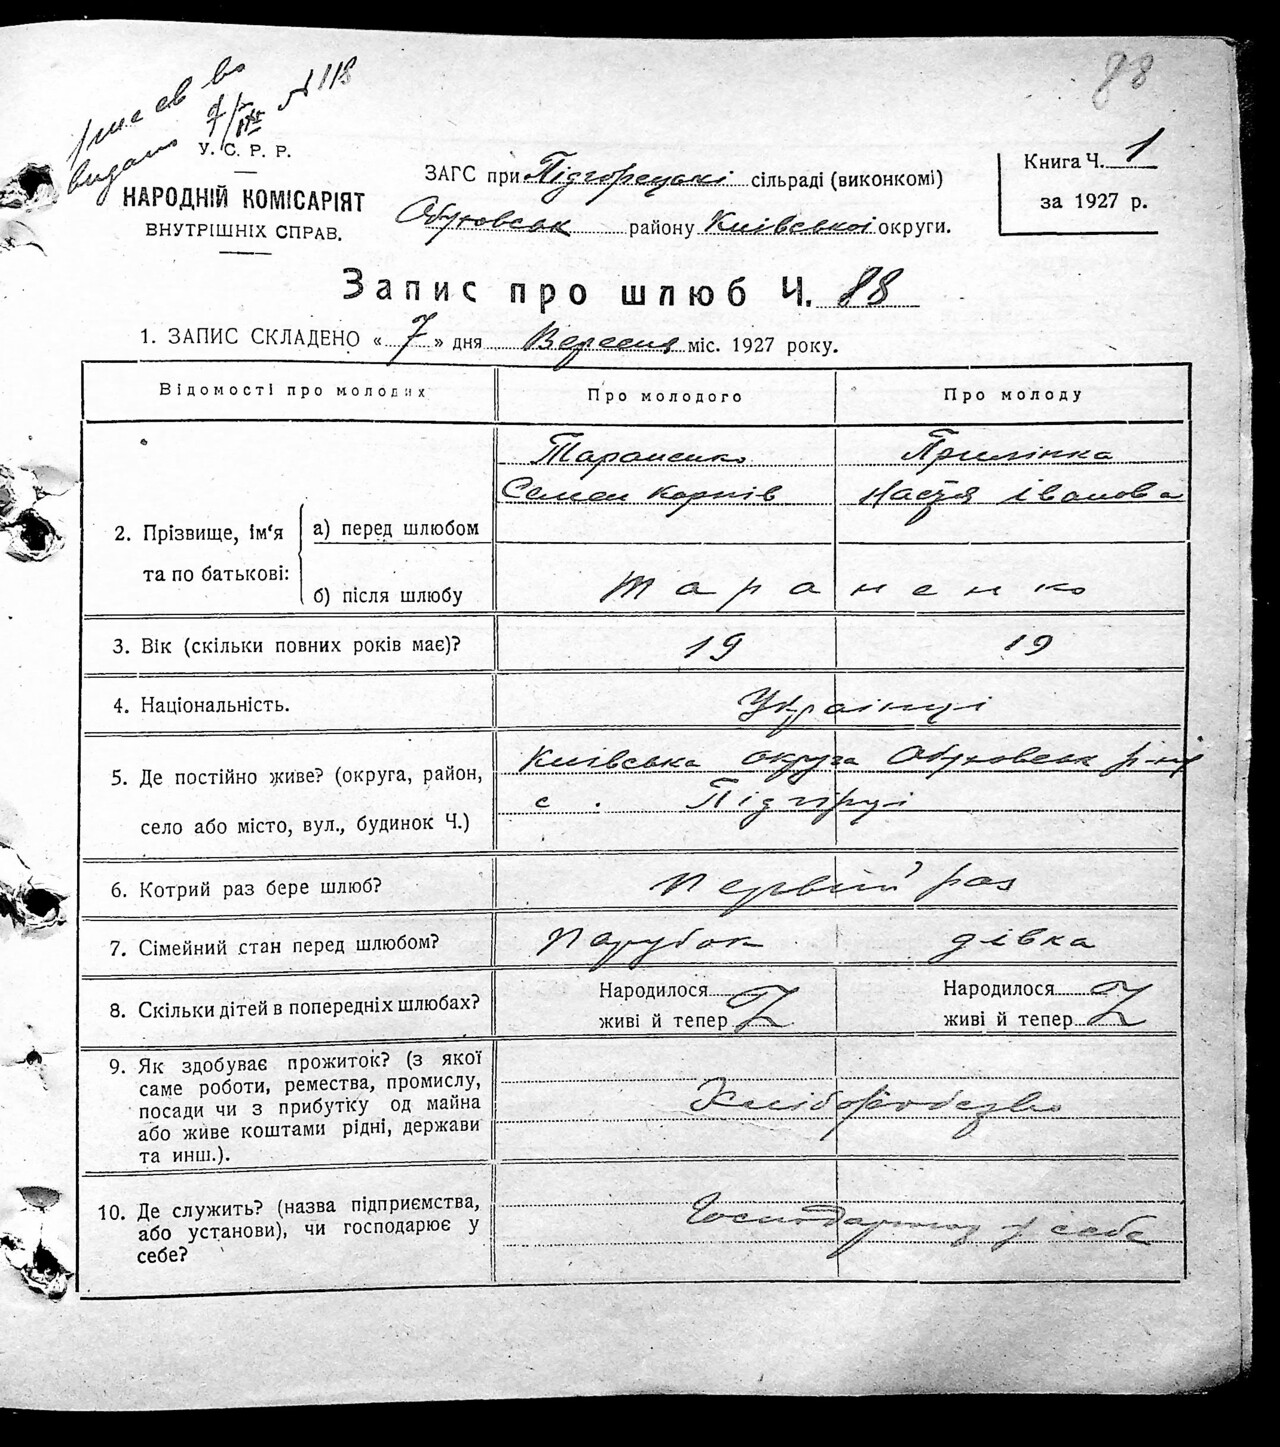 88
видано 7/IX № 118
У. С. Р. Р.
НАРОДНІЙ КОМІСАРІЯТ
ВНУТРІШНІХ СПРАВ.
ЗАГС при Підгорецькі сільраді (виконкомі)
Обуховськ району Київської округи.
Книга Ч. 1
за 1927 р.
Запис про шлюб Ч. 88
1. ЗАПИС СКЛАДЕНО « 7 » дня Вересня міс. 1927 року.
Відомості про молодих Про молодого Про молоду
2. Прізвище, ім‘я та по батькові:
а) перед шлюбом
Тараненко
Семен Корнів
Настя Іванова
б) після шлюбу
Тараненко
3. Вік (скільки повних років має)? 19 19
4. Національність. Українці
5. Де постійно живе? (округа, район,
село або місто, вул., будинок Ч.)
Київська округа Обуховськ р-ну
с. Підгірці
6. Котрий раз бере шлюб? первий раз
7. Сімейний стан перед шлюбом? парубок дівка
8. Скільки дітей в попередніх шлюбах?
Народилося
живі й тепер
Народилося
живі й тепер
9. Як здобуває прожиток? (з якої
саме роботи, ремества, промислу,
посади чи з прибутку од майна
або живе коштами рідні, держави
та инш.).
Хліборобство
10. Де служить? (назва підприємства,
або установи), чи господарює у
себе?
у себе